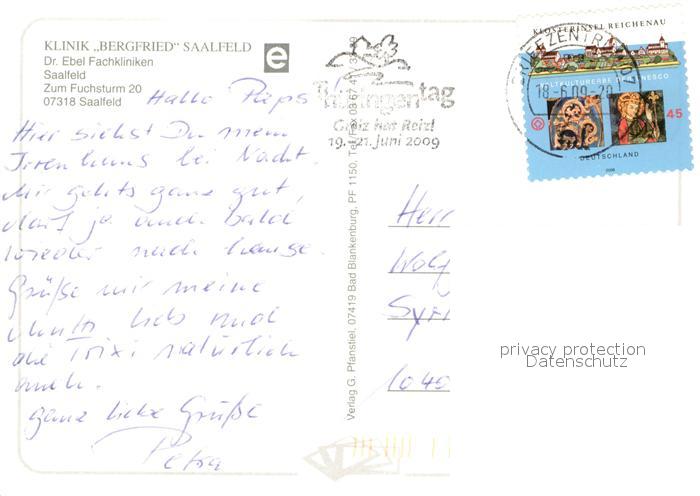 KLINIK „BERGFRIED" SAALFELD
Dr. Ebel Fachkliniken
Saalfeld
Zum Fuchsturm 20
07318 Saalfeld
e
Hallo Paps
Hier siehst Du mein
Irrenhaus bei Nacht.
Mir gehts ganz gut,
darf ja auch bald
wieder nach hause.
Grüße mir meine
lieb und
die Trixi natürlich
auch.
ganz liebe Grüße
Petra
Verlag G. Pfanstiel, 07419 Bad Blankenburg, PF 1150, Tel./Fax 03 67 41
Thüringentag
Greiz hat Reiz!
19.-21. Juni 2009
KLOSTERINSEL REICHENAU
BRIEFZENTRUM
18-6.09-20
WELTKULTURERBE DER UNESCO
45
DEUTSCHLAND
2008
Herr
Wolf
1040
privacy protection
Datenschutz